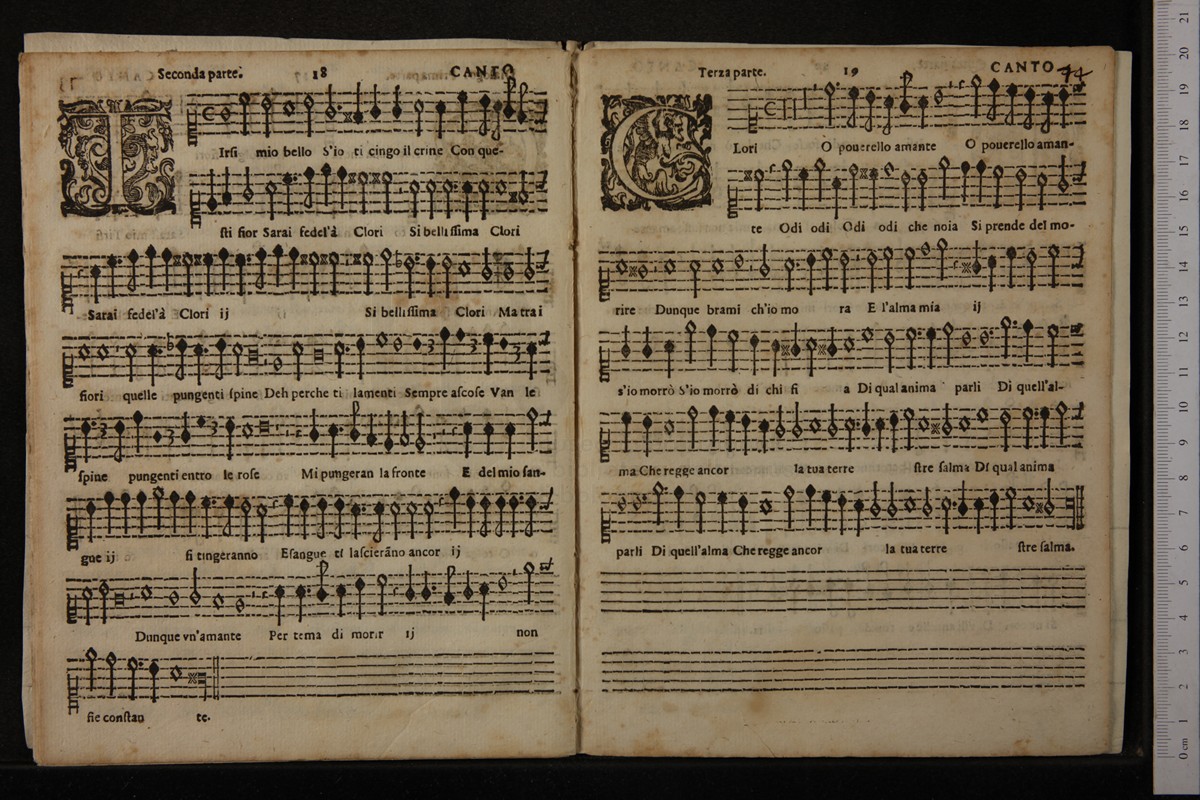 Seconda parte. 18 CANTO
T
Irsi mio bello S'io ti cingo il crine Con que-
sti fior Sarai fedel'à Clori Si bellissima Clori
Sarai fedel'à Clori ij Si bellissima Clori Ma tra i
fiori quelle pungenti spine Deh perche ti lamenti Sempre ascose Van le
spine pungenti entro le rose Mi pungeran la fronte E del mio san-
gue ij si tingeranno Esangue ti lascierãno ancor ij
Dunque vn'amante Per tema di morir ij non
sie constan te.
Terza parte. 19 CANTO 44
C
Lori O pouerello amante O pouerello aman-
te Odi odi Odi odi che noia Si prende del mo-
rire Dunque brami ch'io mo ra E l'alma mia ij
s'io morrò S'io morrò di chi fi a Di qual anima parli Di quell'al-
ma Che regge ancor la tua terre stre salma Di qual anima
parli Di quell'alma Che regge ancor la tua terre stre salma.
0 cm 1 2 3 4 5 6 7 8 9 10 11 12 13 14 15 16 17 18 19 20 21